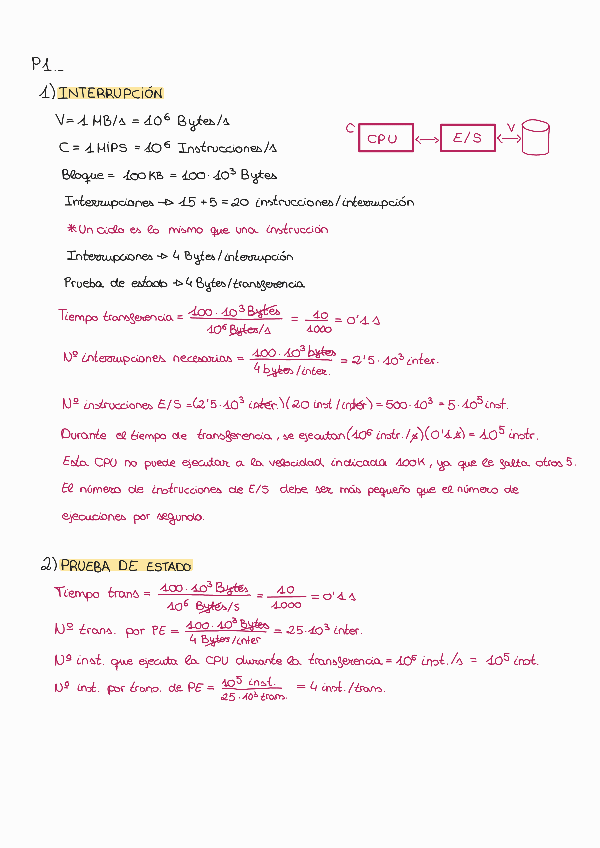 P1._
1) INTERRUPCIÓN
V = 1 MB/s = 10⁶ Bytes/s
C = 1 MIPS = 10⁶ Instrucciones/s
C CPU E/S V
Bloque = 100KB = 100·10³ Bytes
Interrupciones → 15 + 5 = 20 instrucciones/interrupción
*Un ciclo es lo mismo que una instrucción
Interrupciones → 4 Bytes/interrupción
Prueba de estado → 4 Bytes/transferencia
Tiempo transferencia = 100·10³ Bytes / 10⁶ Bytes/s = 10 / 1000 = 0'1 s
Nº interrupciones necesarias = 100·10³ bytes / 4 bytes/inter. = 2'5·10³ inter.
Nº instrucciones E/S = (2'5·10³ inter.)(20 inst/inter) = 500·10³ = 5·10⁵ inst.
Durante el tiempo de transferencia, se ejecutan (10⁶ instr./s)(0'1 s) = 10⁵ instr.
Esta CPU no puede ejecutar a la velocidad indicada 100K, ya que le falta otros 5.
El número de instrucciones de E/S debe ser más pequeño que el número de
ejecuciones por segundo.
2) PRUEBA DE ESTADO
Tiempo trans = 100·10³ Bytes / 10⁶ Bytes/s = 10 / 1000 = 0'1 s
Nº trans. por PE = 100·10³ Bytes / 4 Bytes/inter = 25·10³ inter.
Nº inst. que ejecuta la CPU durante la transferencia = 10⁶ inst./s = 10⁵ inst.
Nº inst. por trans. de PE = 10⁵ inst. / 25·10³ trans. = 4 inst./trans.